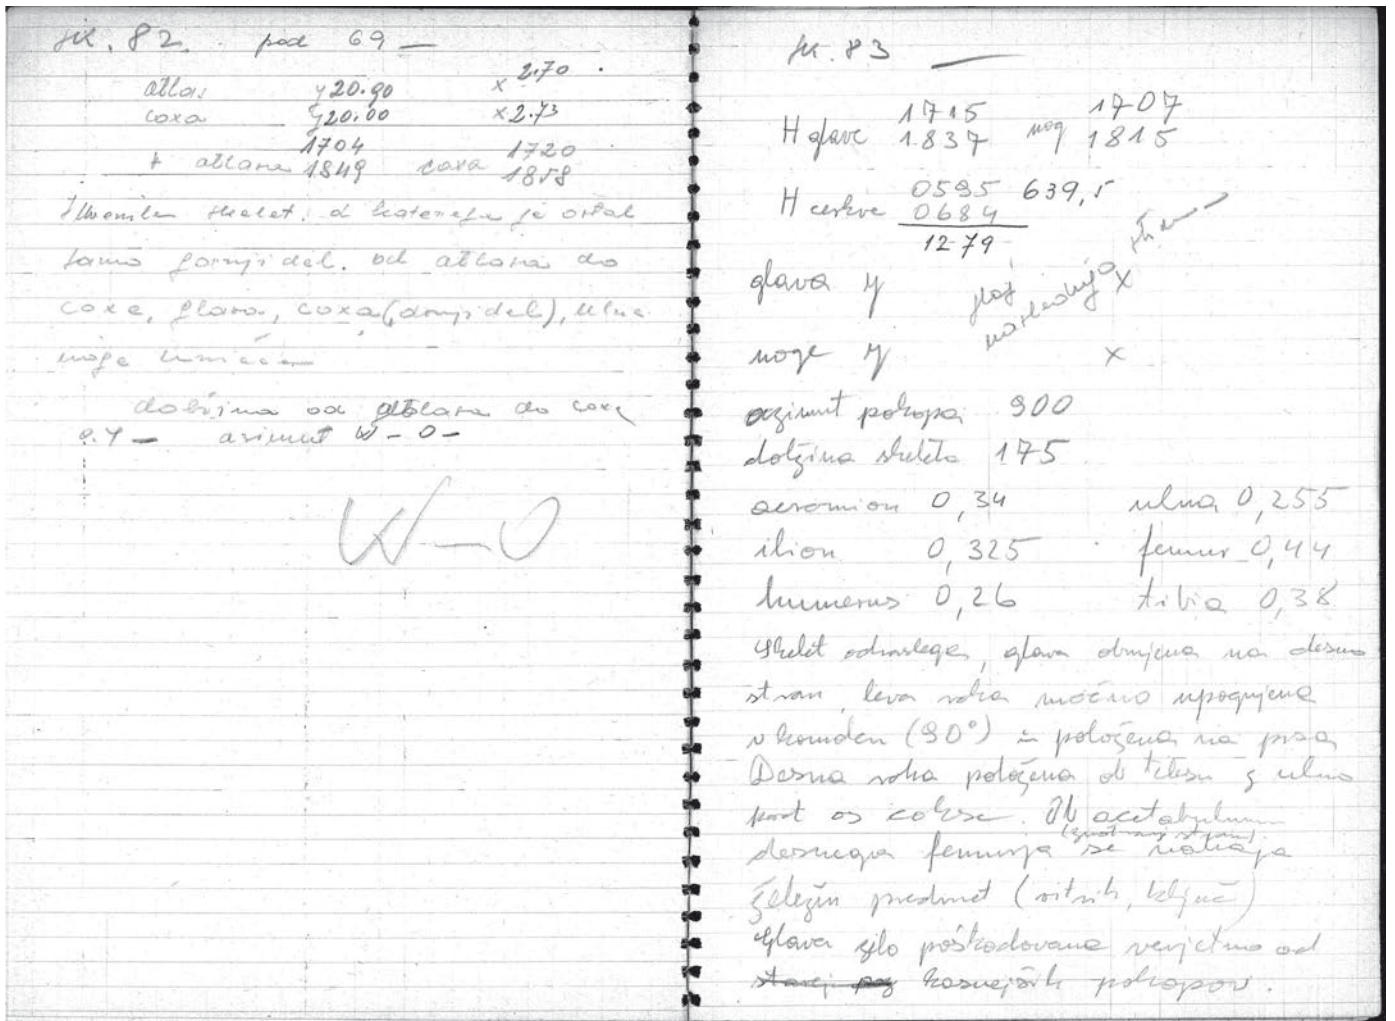 sk. 82. pod 69 —
atlas y 20.90 x 2.70
coxa y 20.00 x 2.73
1704 1720
H atlasa 1849 coxa 1858
skelet, od katerega je ostal
samo gornji del. od atlasa do
coxe, glava, coxa (donji del), ulna
noge
dolžina od atlasa do coxe
0.4 — azimut W-O-
W-O
sk. 83 —
1715 1707
H glave 1837 nog 1815
H cerkve 0595 639,5
0684
1279
glava y x
glej naslednjo stran
noge y x
azimut pokopa 900
dolžina skeleta 175
acromion 0,34 ulna 0,255
ilion 0,325 femur 0,44
humerus 0,26 tibia 0,38
Skelet odraslega, glava obrnjena na desno
stran, leva roka močno upognjena
v komolcu (90°) in položena na prsa
Desna roka položena ob telesu z ulno
pod os cokse. Ob acetabulumu
(znotranj stran)
desnega femurja se nahaja
železen predmet (ključ)
Glava zelo poškodovana verjetno od
kasnejših pokopov.